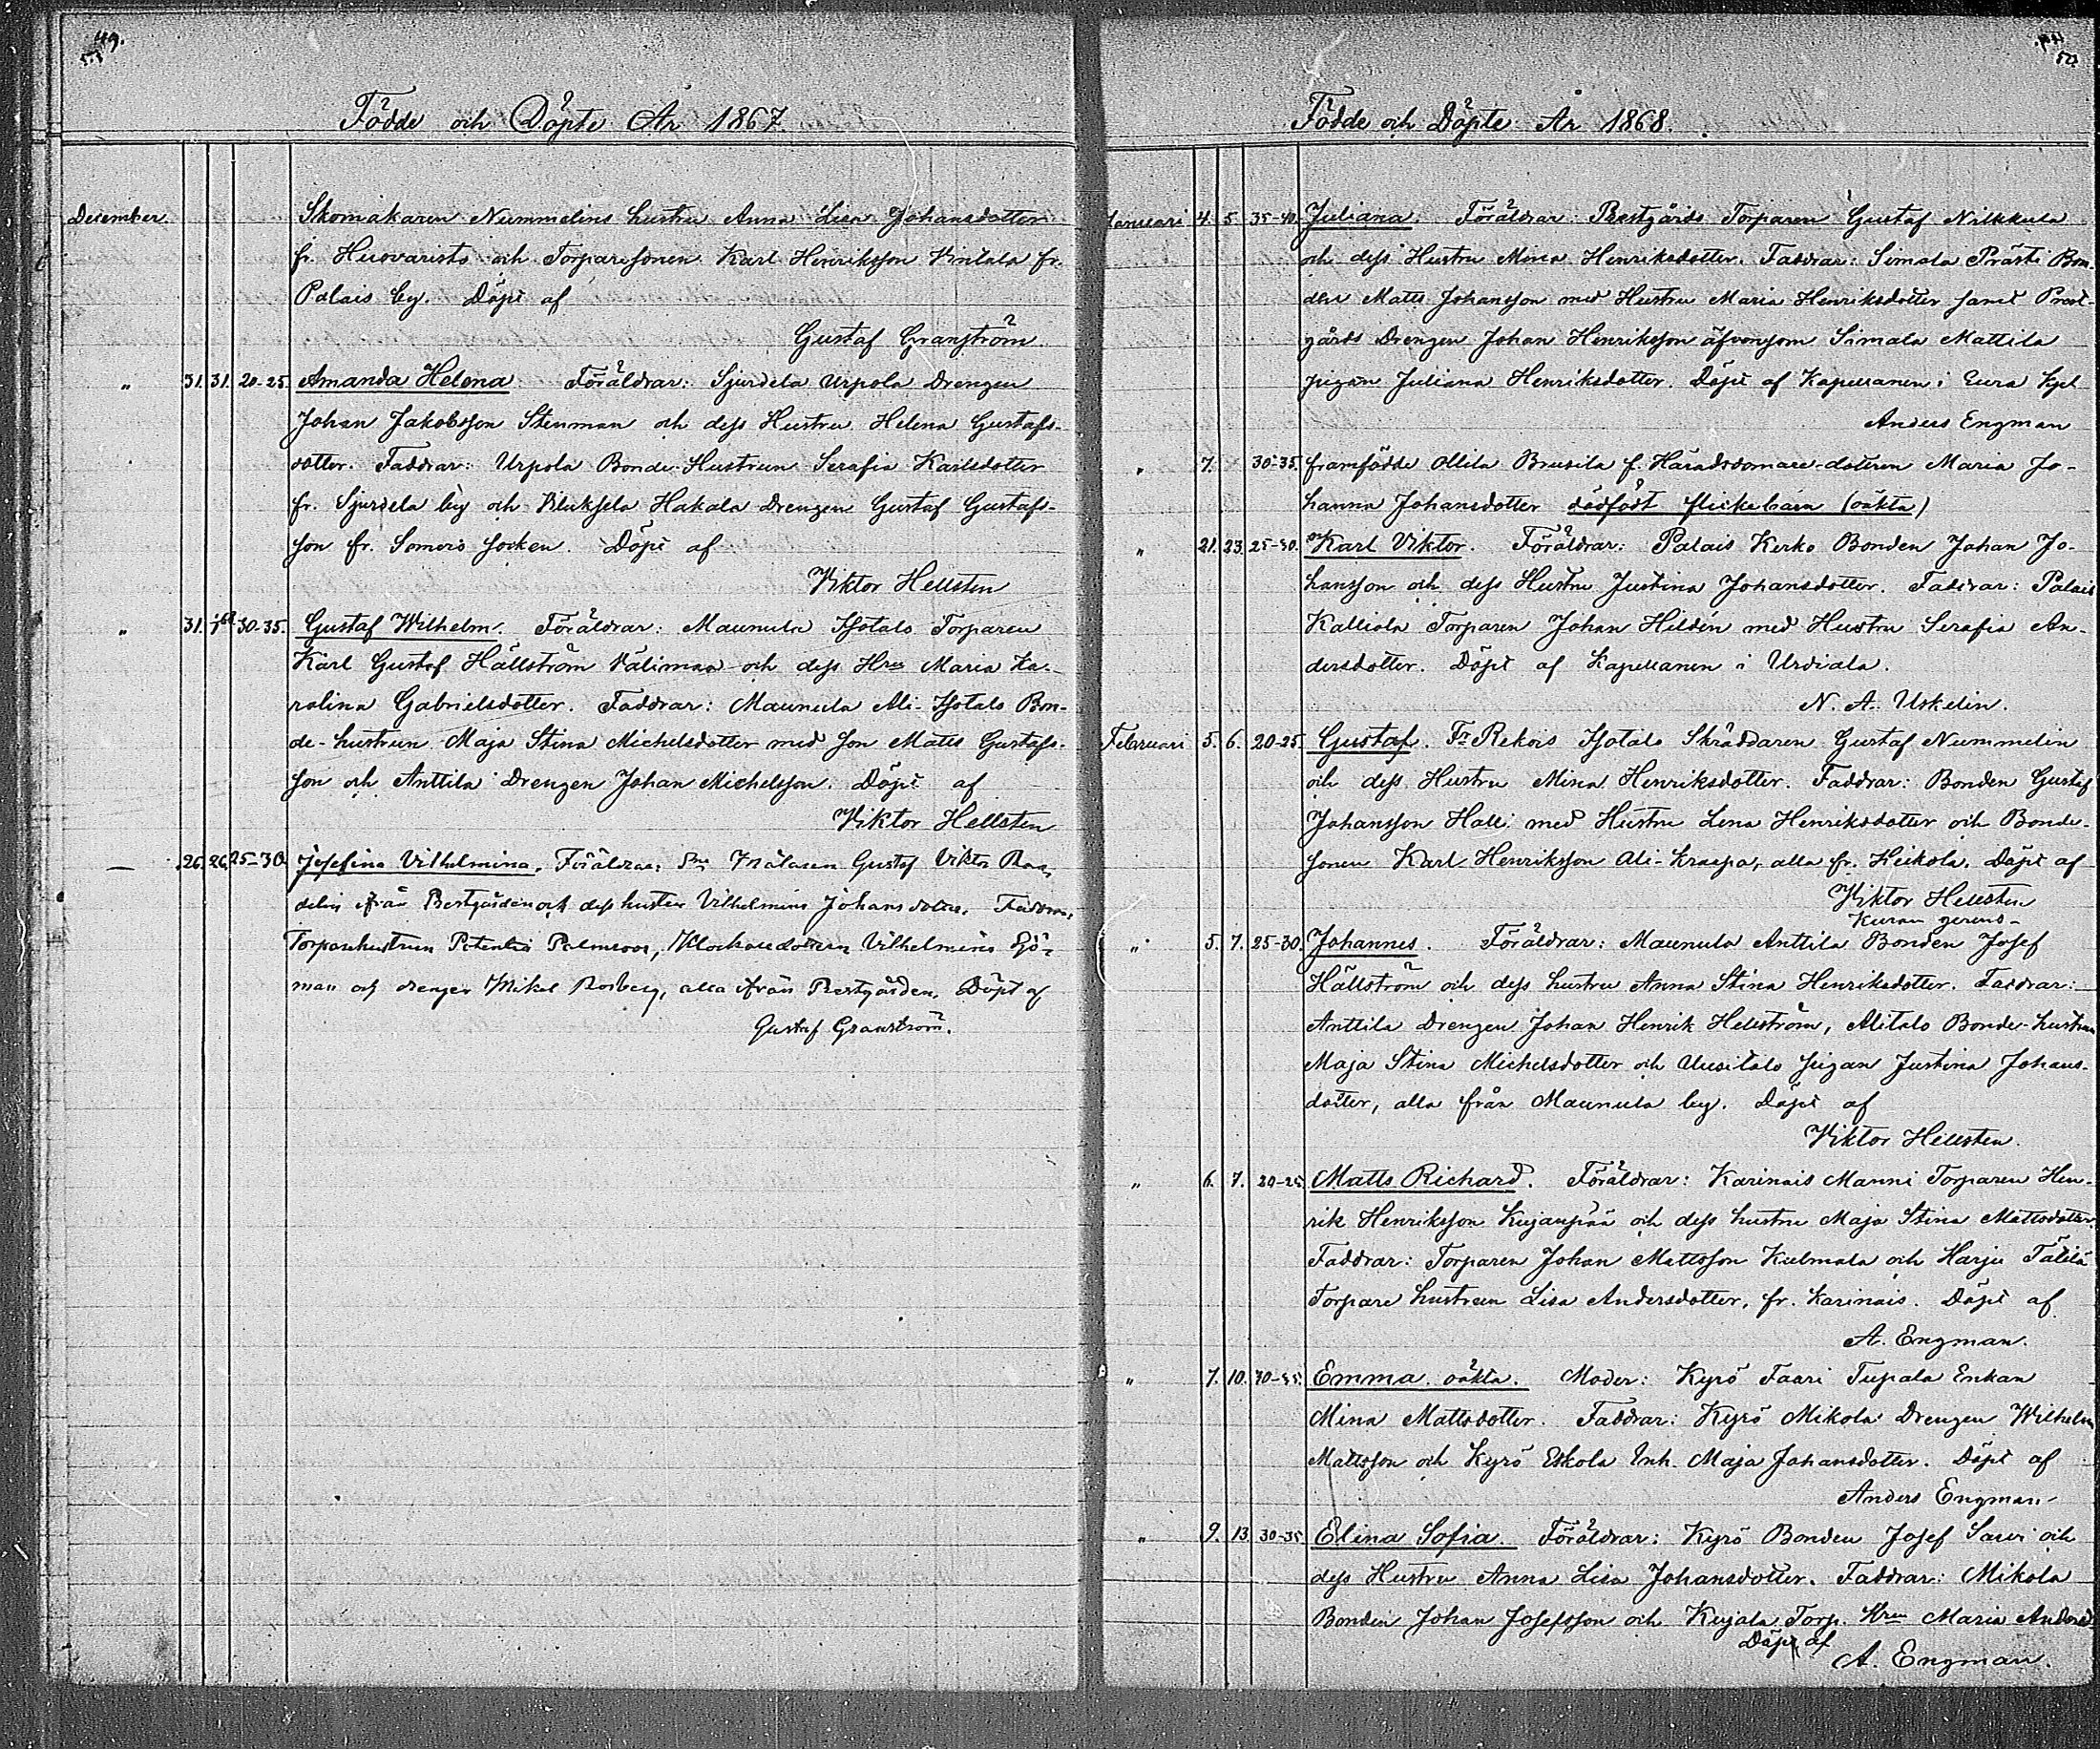 49.
Födde och Döpte År 1867
December. Skomakaren Nummelins hustru Anna Lisa Johansdotter
fr. Huovaristo och Torparesonen Karl Henriksson Vintala fr.
Palais by. Döpt af
Gustaf Granström
" 31. 31. 20-25. Amanda Helena Föräldrar: Sjurdela Urpola Drengen
Johan Jakobsson Stenman och dess Hustru Helena Gustafs-
dotter. Faddrar: Urpola Bonde-Hustrun Serafia Karlsdotter
fr. Sjurdela by och Viluksela Hakala Drengen Gustaf Gustafs-
son fr. Somero socken. Döpt af
Viktor Hellsten
" 31. 30-35. Gustaf Wilhelm. Föräldrar: Maunula Isotalo Torparen
Karl Gustaf Hällström Välimaa och dess Hru Maria Ka-
rolina Gabrielsdotter. Faddrar: Maunula Ali-Isotalo Bon-
de-hustrun Maja Stina Michelsdotter med son Matts Gustafs-
son och Anttila Drengen Johan Michelsson. Döpt af
Viktor Hellsten
— 26. 26. 25-30 Josefina Vilhelmina. Föräldrar: Gustaf Viktor
ifrån Prestgården och dess hustru Vilhelmina Johansdotter. Faddrar:
Torparehustrun Palmroos, Klockaredottern Vilhelmina Sjö-
man och drengen Mikel Rosberg, alla ifrån Prestgården. Döpt af
Gustaf Granström.
49.
Födde och Döpte År 1868.
Januari 4. 5. 35-40. Juliana. Föräldrar: Prestgårds Torparen Gustaf Nikkula
och dess Hustru Mina Henriksdotter. Faddrar: Simala Prästi Bon-
den Matts Johansson med Hustru Maria Henriksdotter samt Prest-
gårds Drengen Johan Henriksson äfvensom Simala Mattila
pigan Juliana Henriksdotter. Döpt af Kapellanen i Eura Kpl
Anders Engman
" 7. 30-35. framfödde Ollila Brusila f. Häradsdomare-dotern Maria Jo-
hanna Johansdotter dödfödt flickebarn (oäkta)
" 21. 23. 25-30. Karl Viktor. Föräldrar: Palais Kerko Bonden Johan Jo-
hansson och dess Hustru Justina Johansdotter. Faddrar: Palais
Kalliola Torparen Johan Hildén med Hustru Serafia An-
dersdotter. Döpt af Kapellanen i Urdiala.
N. A. Uskelin.
Februari 5. 6. 20-25. Gustaf. Fr Rekois Isotalo Skräddaren Gustaf Nummelin
och dess Hustru Mina Henriksdotter. Faddrar: Bonden Gustaf
Johansson Halli med Hustru Lena Henriksdotter och Bonde-
sonen Karl Henriksson Ali-Kraapa, alla fr. Heikola. Döpt af
Viktor Hellsten
" 5. 7. 25-30. Johannes. Föräldrar: Maunula Anttila Bonden Josef
Hällström och dess hustru Anna Stina Henriksdotter. Faddrar:
Anttila Drengen Johan Henrik Hellström, Alitalo Bonde-hustrun
Maja Stina Michelsdotter och Uusitalo pigan Justina Johans-
dotter, alla från Maunula by. Döpt af
Viktor Hellsten.
" 6. 7. 20-25 Matts Richard. Föräldrar: Karinais Manni Torparen Hen-
rik Henriksson Kujanpää och dess hustru Maja Stina Mattsdotter.
Faddrar: Torparen Johan Mattsson Kulmala och Harju Tätilä
Torpare hustrun Lisa Andersdotter, fr. Karinais. Döpt af
A. Engman.
" 7. 10. 30-35. Emma oäkta. Moder: Kyrö Faari Tupala Enkan
Mina Mattsdotter. Faddrar: Kyrö Mikola Drengen Wilhelm
Mattsson och Kyrö Eskola Enk. Maja Johansdotter. Döpt af
Anders Engman
" 9. 13. 30-35 Elina Sofia. Föräldrar: Kyrö Bonden Josef Sauri och
dess Hustru Anna Lisa Johansdotter. Faddrar: Mikola
Bonden Johan Josefsson och Kujala Torp. Hru Maria Andersd
Döpt af
A. Engman.